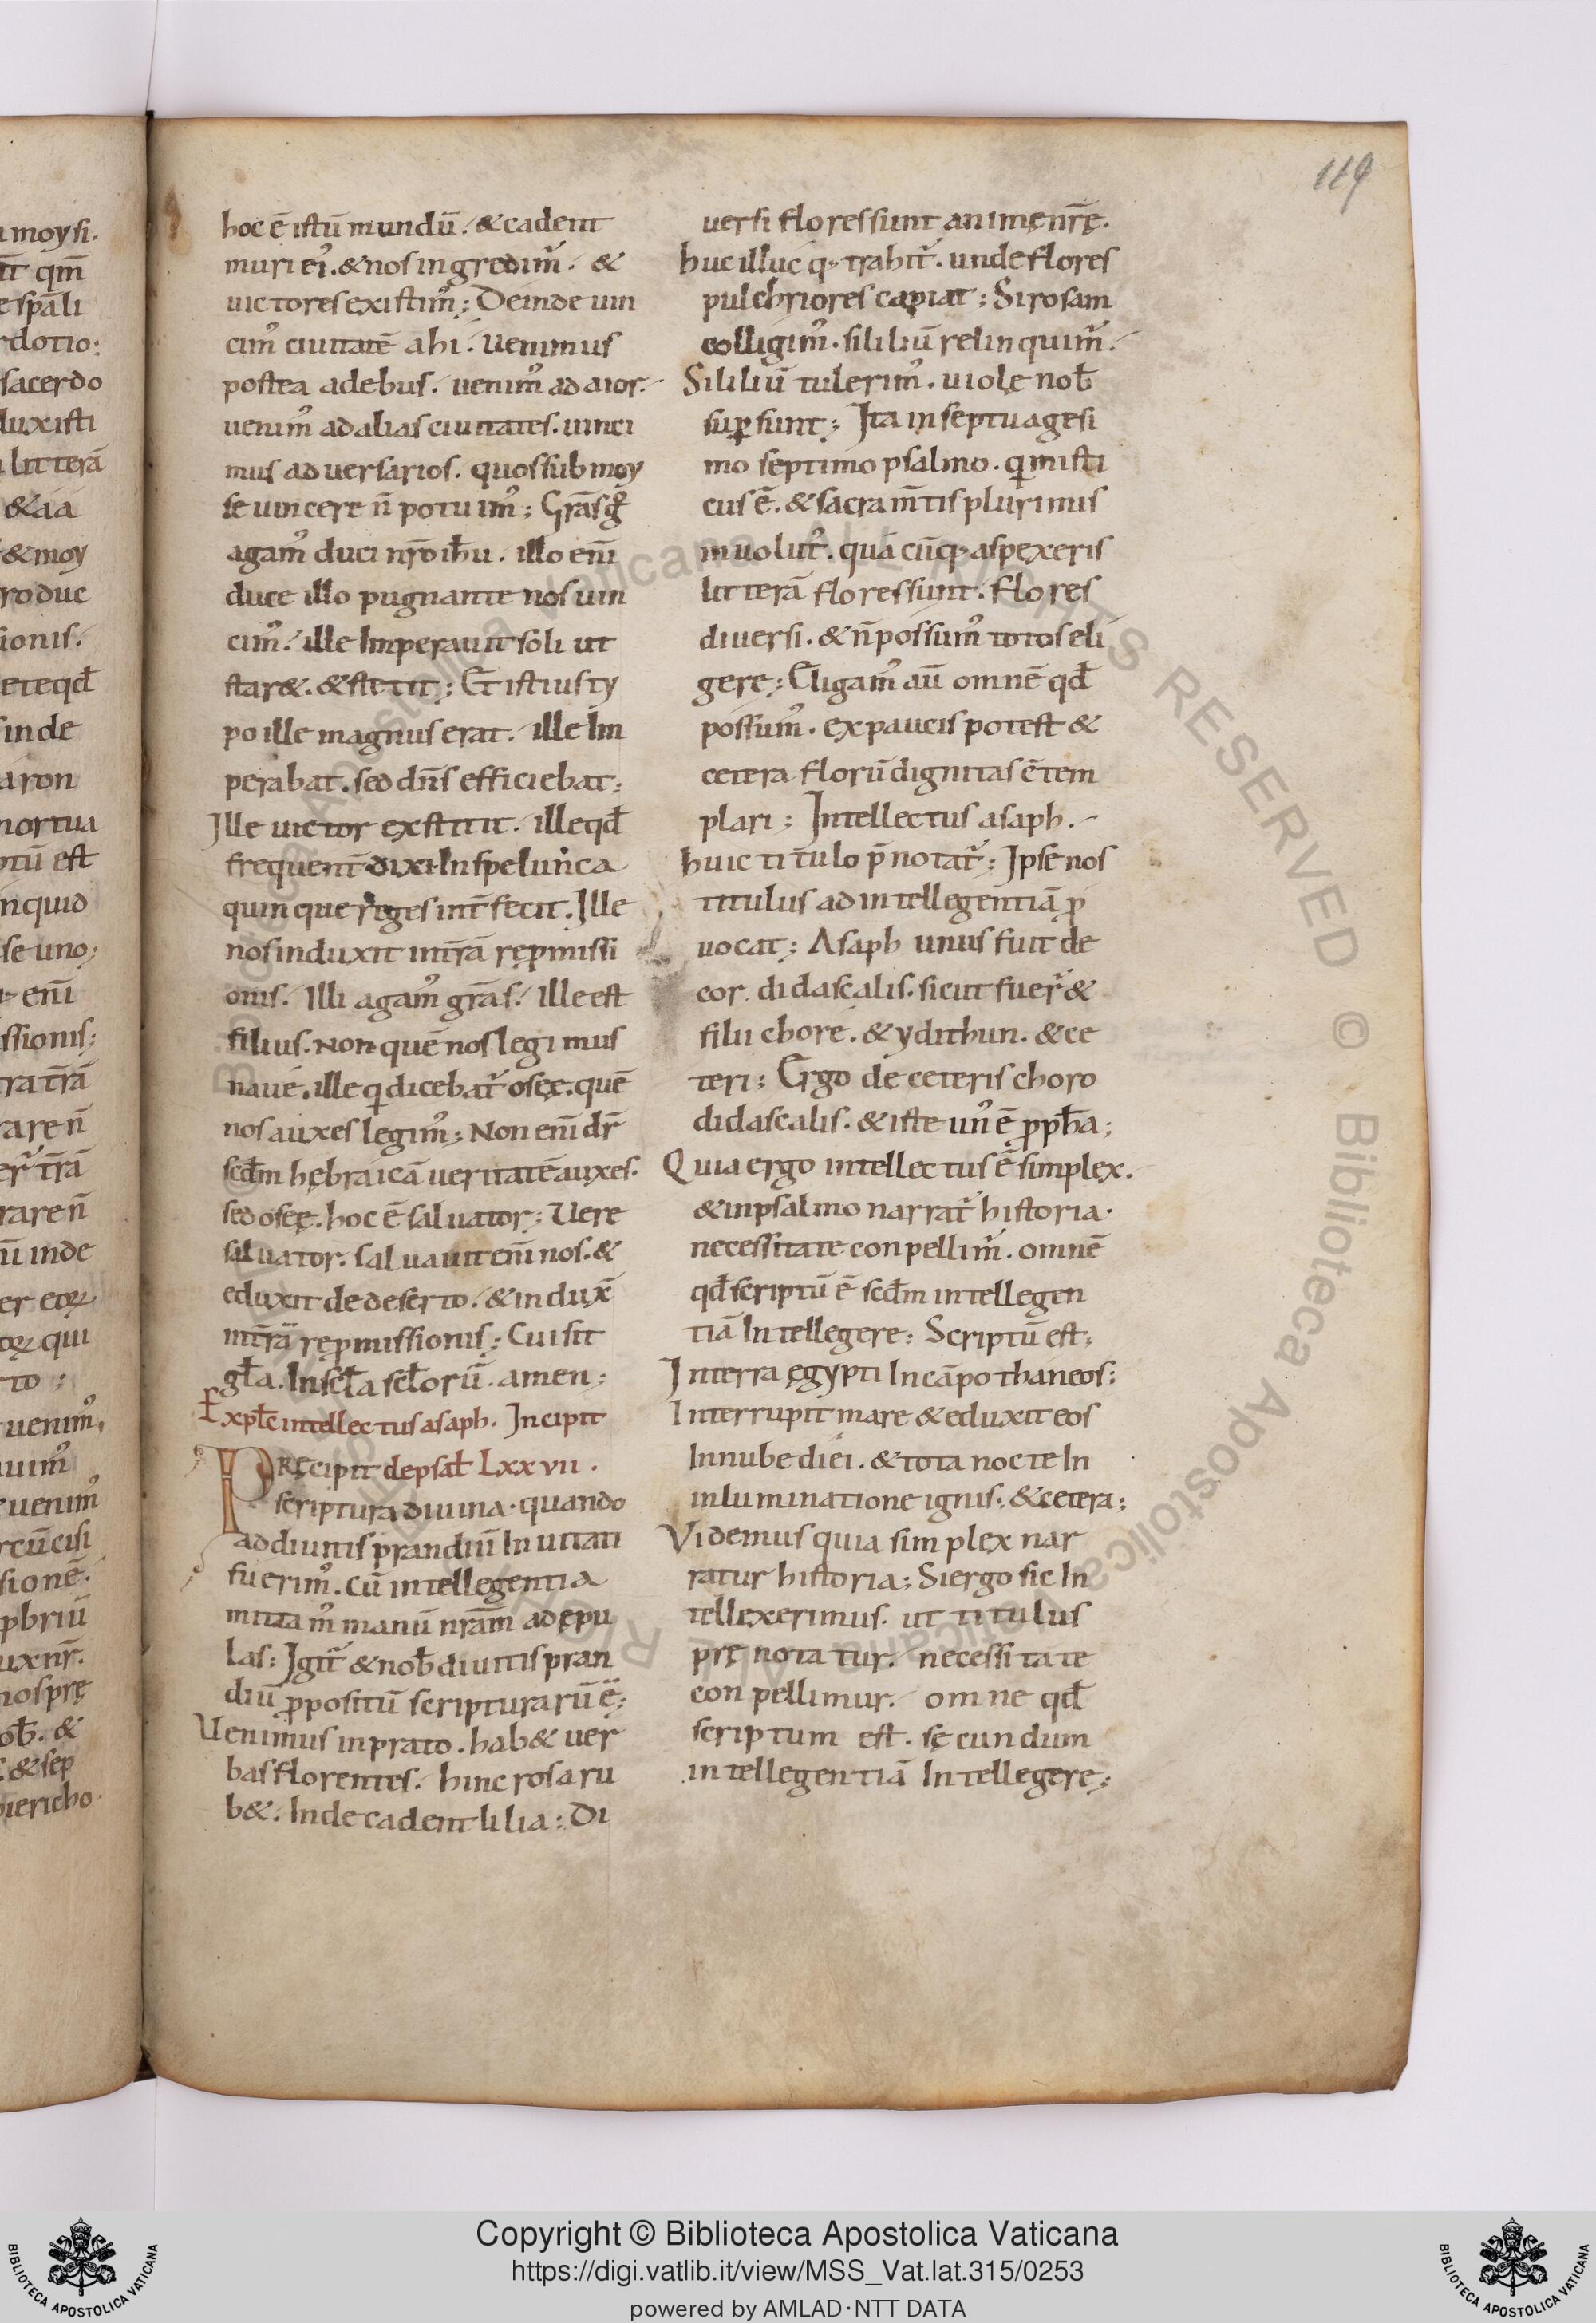 119
hoc ē istū mundū. & cadent
muri ei᾿. & nos ingredim᾿. &
uictores existim᾿; Deinde uin
cim᾿ ciuitatē ahi. Uenimus
postea ad ebus. uenim᾿ ad aior.
uenim᾿ ad alias ciuitates. uinci
mus aduersarios. quos sub moy
se uincere n̄ potuim᾿; Grās
agam᾿ duci nr̄o ih̄u. illo enī
duce illo pugnante nos uin
cim᾿. ille Imperauit soli ut
star&. & stetit; Et istius ty
po ille magnus erat. ille Im
perabat. sed dn̄s efficiebat;
Ille uictor exstitit. ille qđ
frequent̄ dixi In spelunca
quinque reges int̄fecit. Ille
nos induxit in tr̄ā rep̄missi
onis. Illi agam᾿ grās. Ille est
filius. Non quē nos legimus
naue. ille qui dicebat᾿ oseę. quē
nos auxes legim᾿; Non enī dr̄
scđm hębraicā ueritatē auxes.
sed oseę. hoc ē saluator; Uere
saluator. saluauit enī nos. &
eduxit de deserto. & indux̄
in tr̄ā rep̄missionis; Cui sit
gl̄a. In scl̄a scl̄orū. amen;
Expl̄c intellectus asaph. Incipit
de psal̄ Lxxvii.
PRęcipit
scriptura diuina. quando
ad diuitis prandiū Inuitati
fuerim᾿. Cū intellegentia
mittam᾿ manū nrām ad epu
las; Igit᾿ & nob̄ diuitis pran
diū p̄positū scripturarū ē;
Uenimus in prato. hab& uer
bas florentes. hinc rosa ru
b&. Inde cadent lilia; Di
uersi flores sunt animę nr̄ę.
huc illuc q; trahit᾿. unde flores
pulchriores capiat; Si rosam
colligim᾿. si liliū relinquim᾿.
Si liliū tulerim᾿. uiolę nob̄
sup̄sunt; Ita in septuagesi
mo septimo psalmo. qui misti
cus ē. & sacram̄tis plurimis
inuolut᾿. quācūq; aspexeris
litterā flores sunt. flores
diuersi. & n̄ possum᾿ totos eli
gere; Eligam᾿ aū omnē qđ
possum᾿. ex paucis potest &
cetera florū dignitas c̄tem
plari; Intellectus asaph.
huic titulo p̄notat᾿; Ipse nos
titulus ad intellegentiā p̄
uocat; Asaph unus fuit de
cor. didascalis. sicut fuer᾿ &
filii chore. & ydithun. & ce
teri; Ergo de ceteris choro
didascalis. & iste un᾿ ē p̄ph̄a;
Quia ergo intellectus ē simplex.
& in psalmo narrat᾿ historia.
necessitate conpellim᾿. omnē
qđ scriptū ē scđm intellegen
tiā Intellegere; Scriptū est;
In terra ęgypti In cāpo thaneos;
Interrupit mare & eduxit eos
In nube diei. & tota nocte In
inluminatione ignis; & cetera;
Videmus quia simplex nar
ratur historia; Si ergo sic In
tellexerimus. ut titulus
prę notatur. necessitate
conpellimur. omne qđ
scriptum est. sęcundum
intellegentiā Intellegerę;
Copyright © Biblioteca Apostolica Vaticana
https://digi.vatlib.it/view/MSS_Vat.lat.315/0253
powered by AMLAD·NTT DATA
BIBLIOTECA APOSTOLICA VATICANA
BIBLIOTECA APOSTOLICA VATICANA